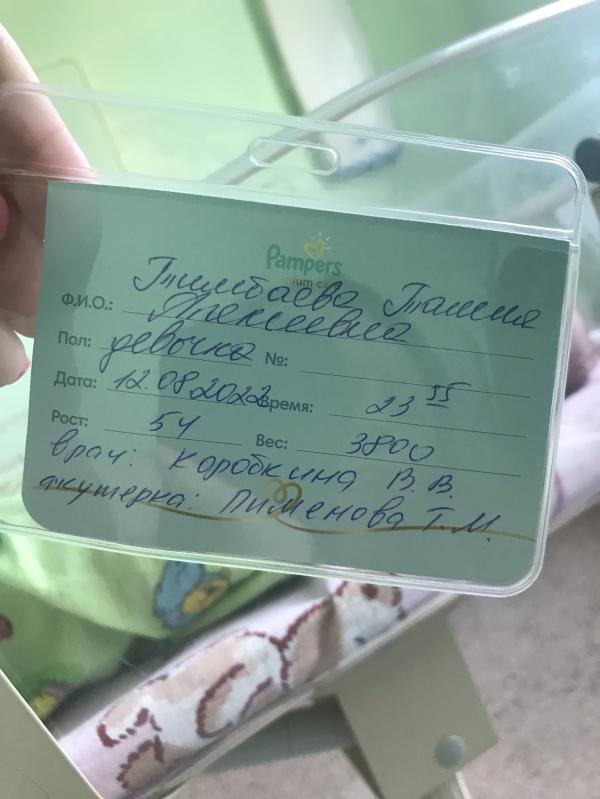 Pampers
premium care
Тимбаева Таисия
Ф.И.О.: Алексеевна
Пол: девочка №:
Дата: 12.08.2022 Время: 23 55
Рост: 54 Вес: 3800
врач: Коробкина В.В.
акушерка: Пименова Т.М.